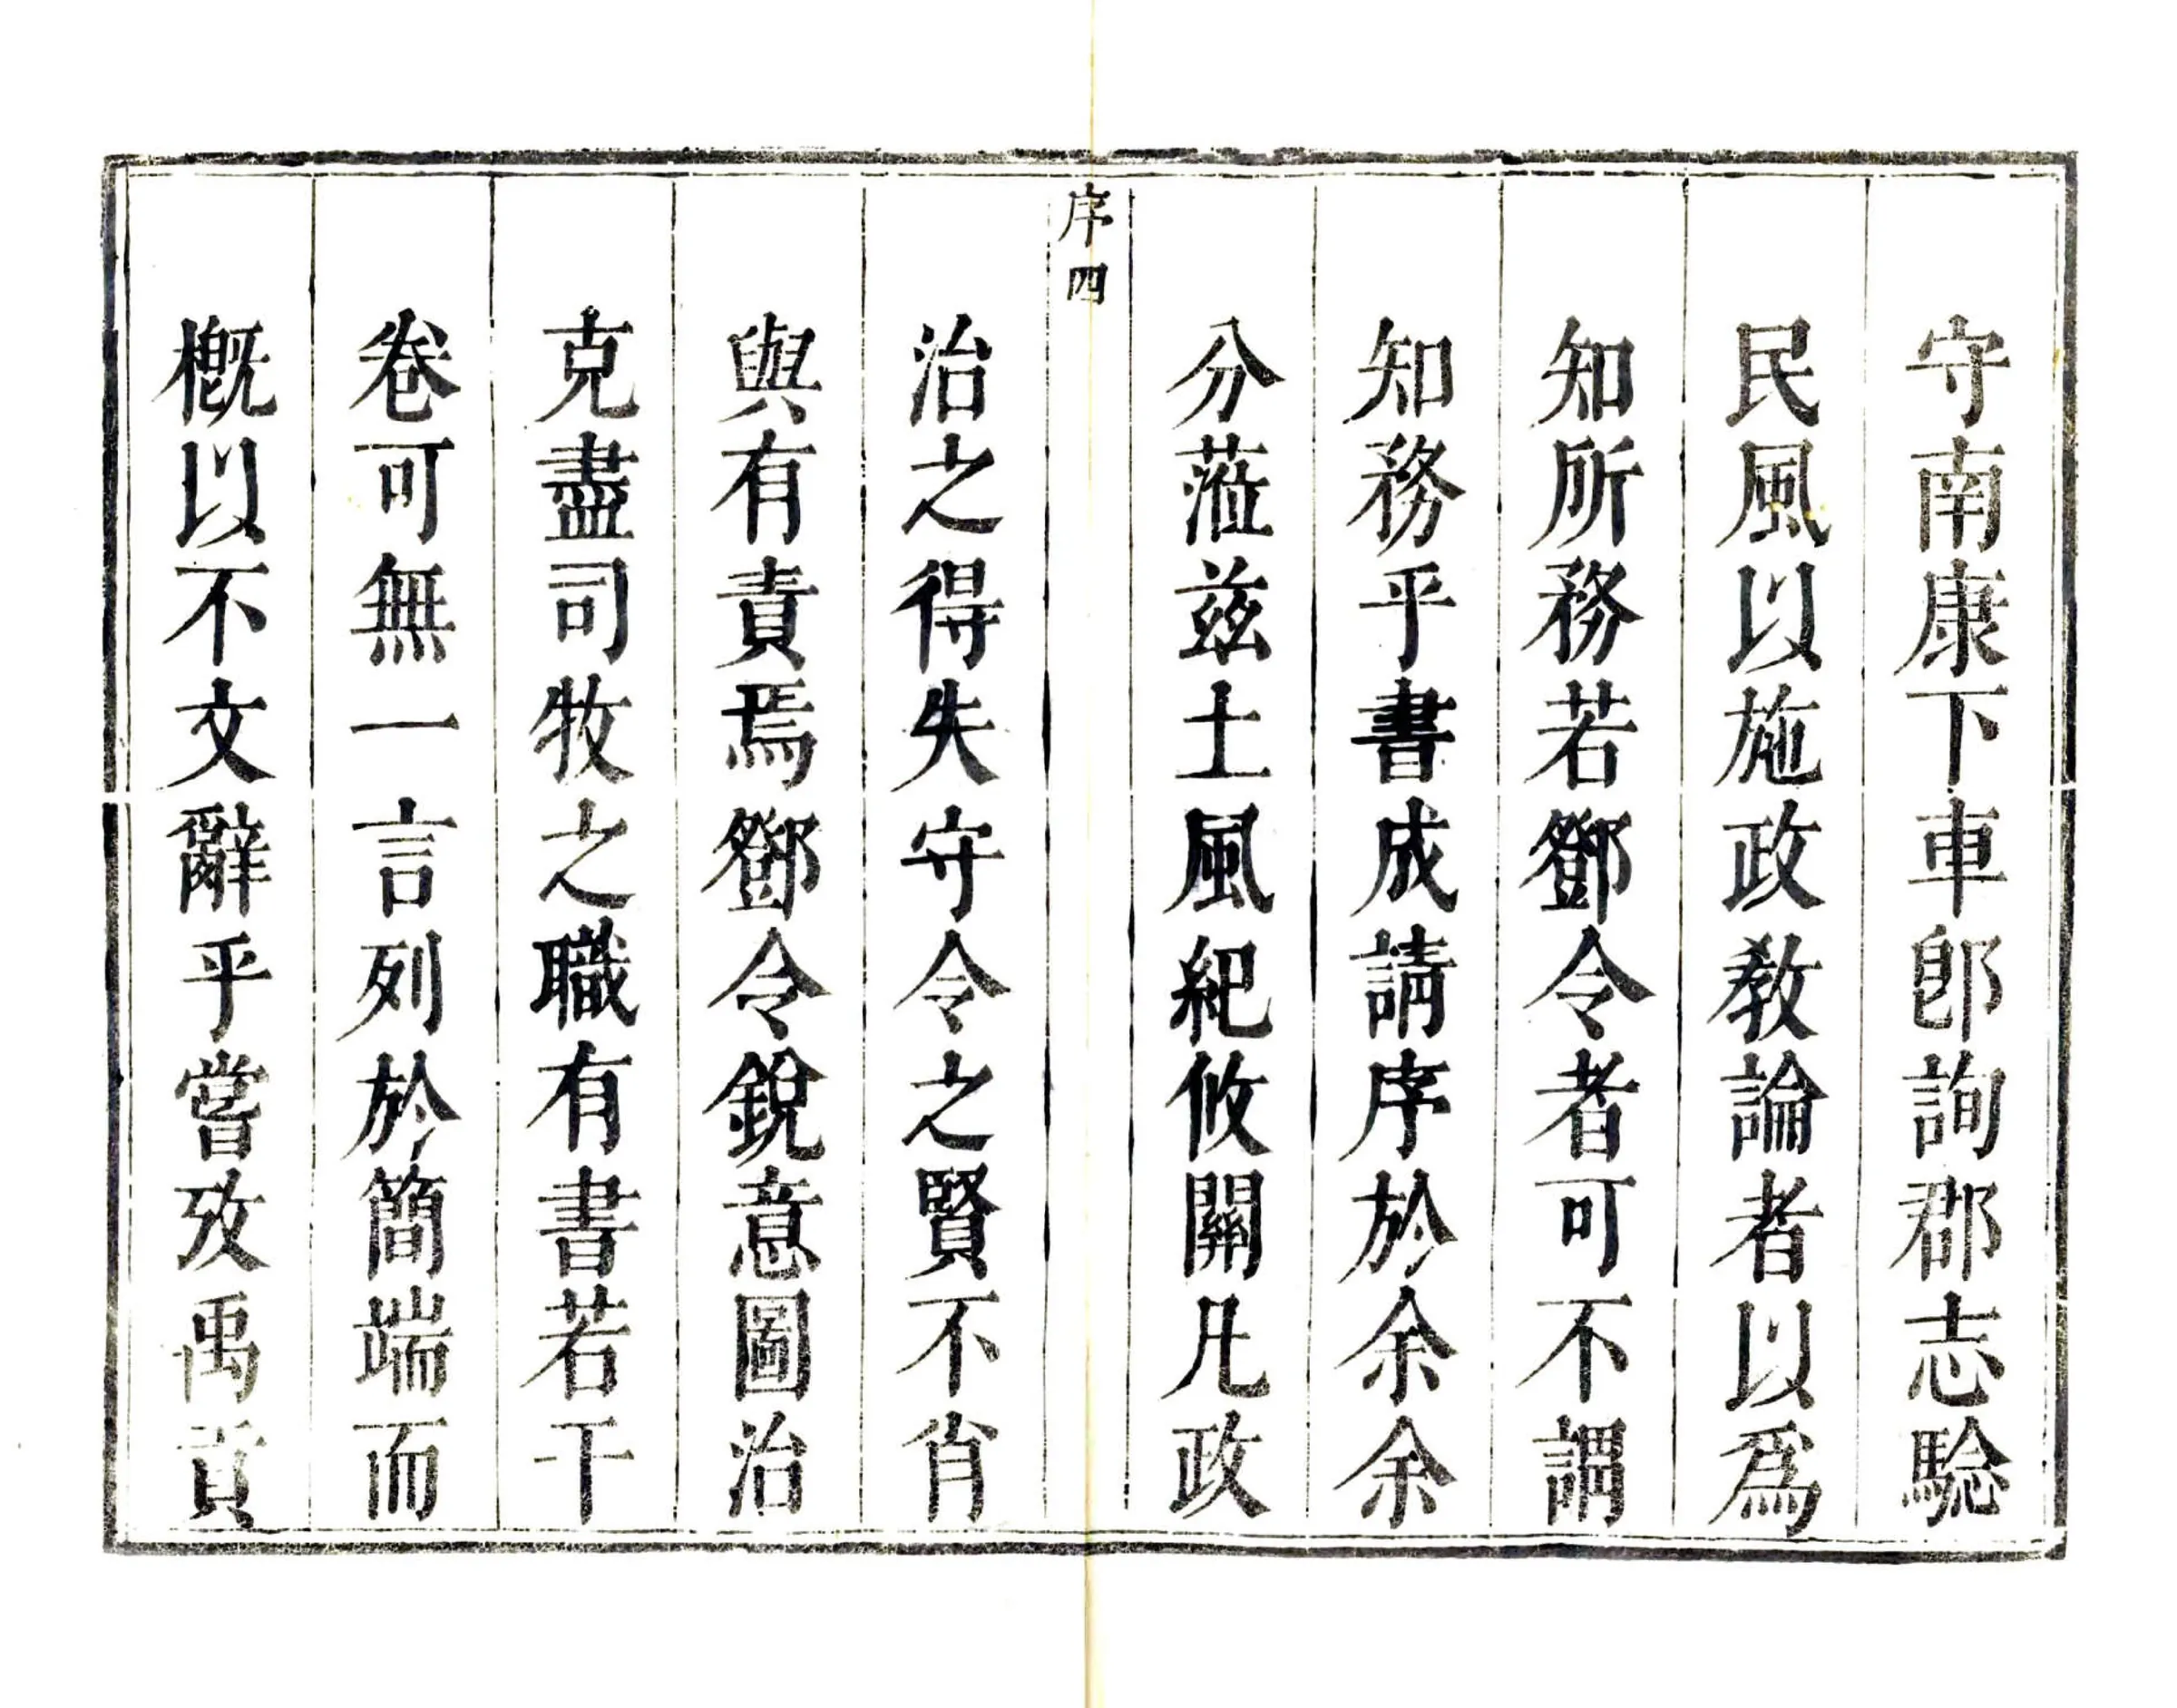 守南康下車卽詢郡志騐
民風以施政敎論者以爲
知所務若鄧令者可不謂
知務乎書成請序於余余
分蒞茲土風紀攸關凡政
序四
治之得失守令之賢不肖
與有責焉鄧令銳意圖治
克盡司牧之職有書若干
卷可無一言列於簡端而
槪以不文辭乎嘗攷禹貢